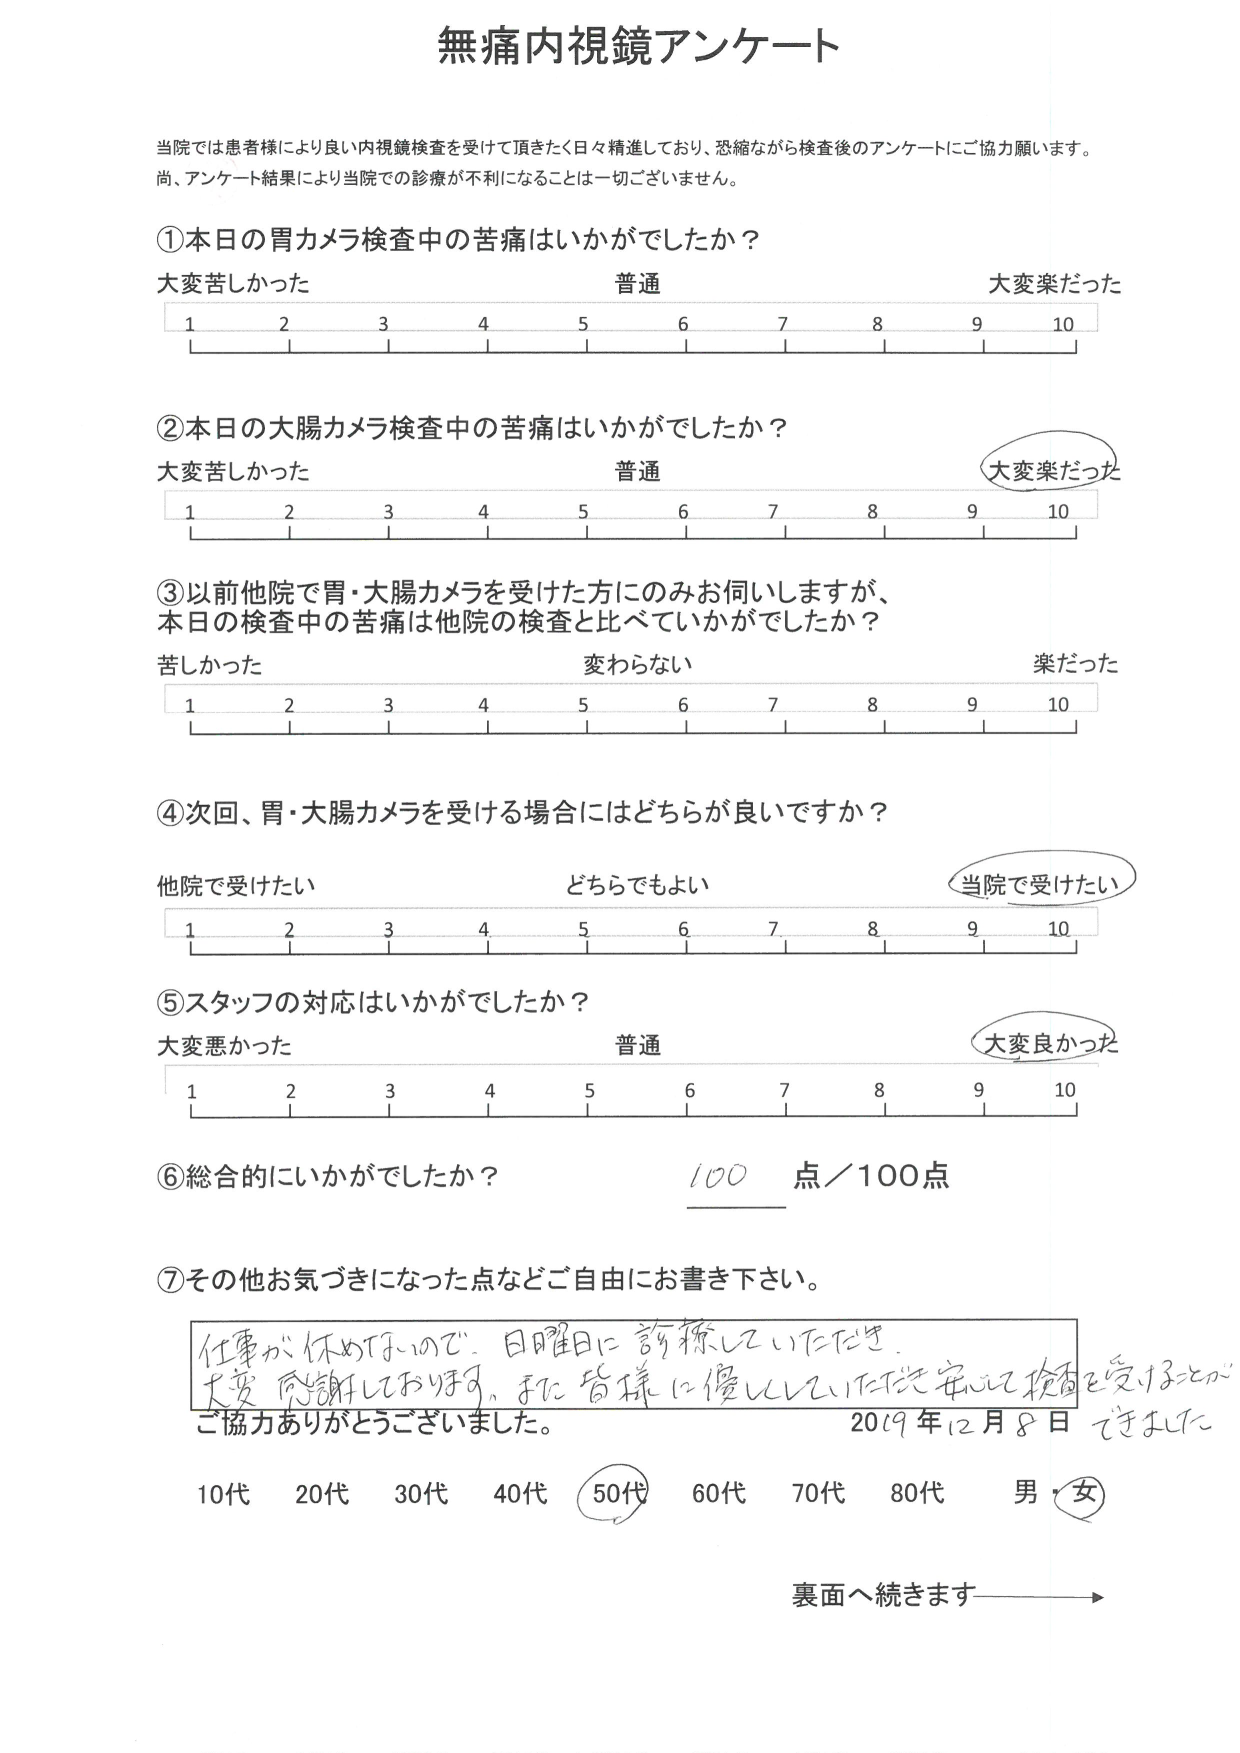 無痛内視鏡アンケート
当院では患者様により良い内視鏡検査を受けて頂きたく日々精進しており、恐縮ながら検査後のアンケートにご協力願います。
尚、アンケート結果により当院での診療が不利になることは一切ございません。
①本日の胃カメラ検査中の苦痛はいかがでしたか？
大変苦しかった 普通 大変楽だった
1 2 3 4 5 6 7 8 9 10
②本日の大腸カメラ検査中の苦痛はいかがでしたか？
大変苦しかった 普通 大変楽だった
1 2 3 4 5 6 7 8 9 10
③以前他院で胃・大腸カメラを受けた方にのみお伺いしますが、
本日の検査中の苦痛は他院の検査と比べていかがでしたか？
苦しかった 変わらない 楽だった
1 2 3 4 5 6 7 8 9 10
④次回、胃・大腸カメラを受ける場合にはどちらが良いですか？
他院で受けたい どちらでもよい 当院で受けたい
1 2 3 4 5 6 7 8 9 10
⑤スタッフの対応はいかがでしたか？
大変悪かった 普通 大変良かった
1 2 3 4 5 6 7 8 9 10
⑥総合的にいかがでしたか？ 100 点／100点
⑦その他お気づきになった点などご自由にお書き下さい。
仕事が休めないので、日曜日に診療していただき、
大変感謝しております。また皆様に優しくしていただき安心して検査を受けることが
できました
ご協力ありがとうございました。 2019年12月8日
10代 20代 30代 40代 50代 60代 70代 80代 男・女
裏面へ続きます